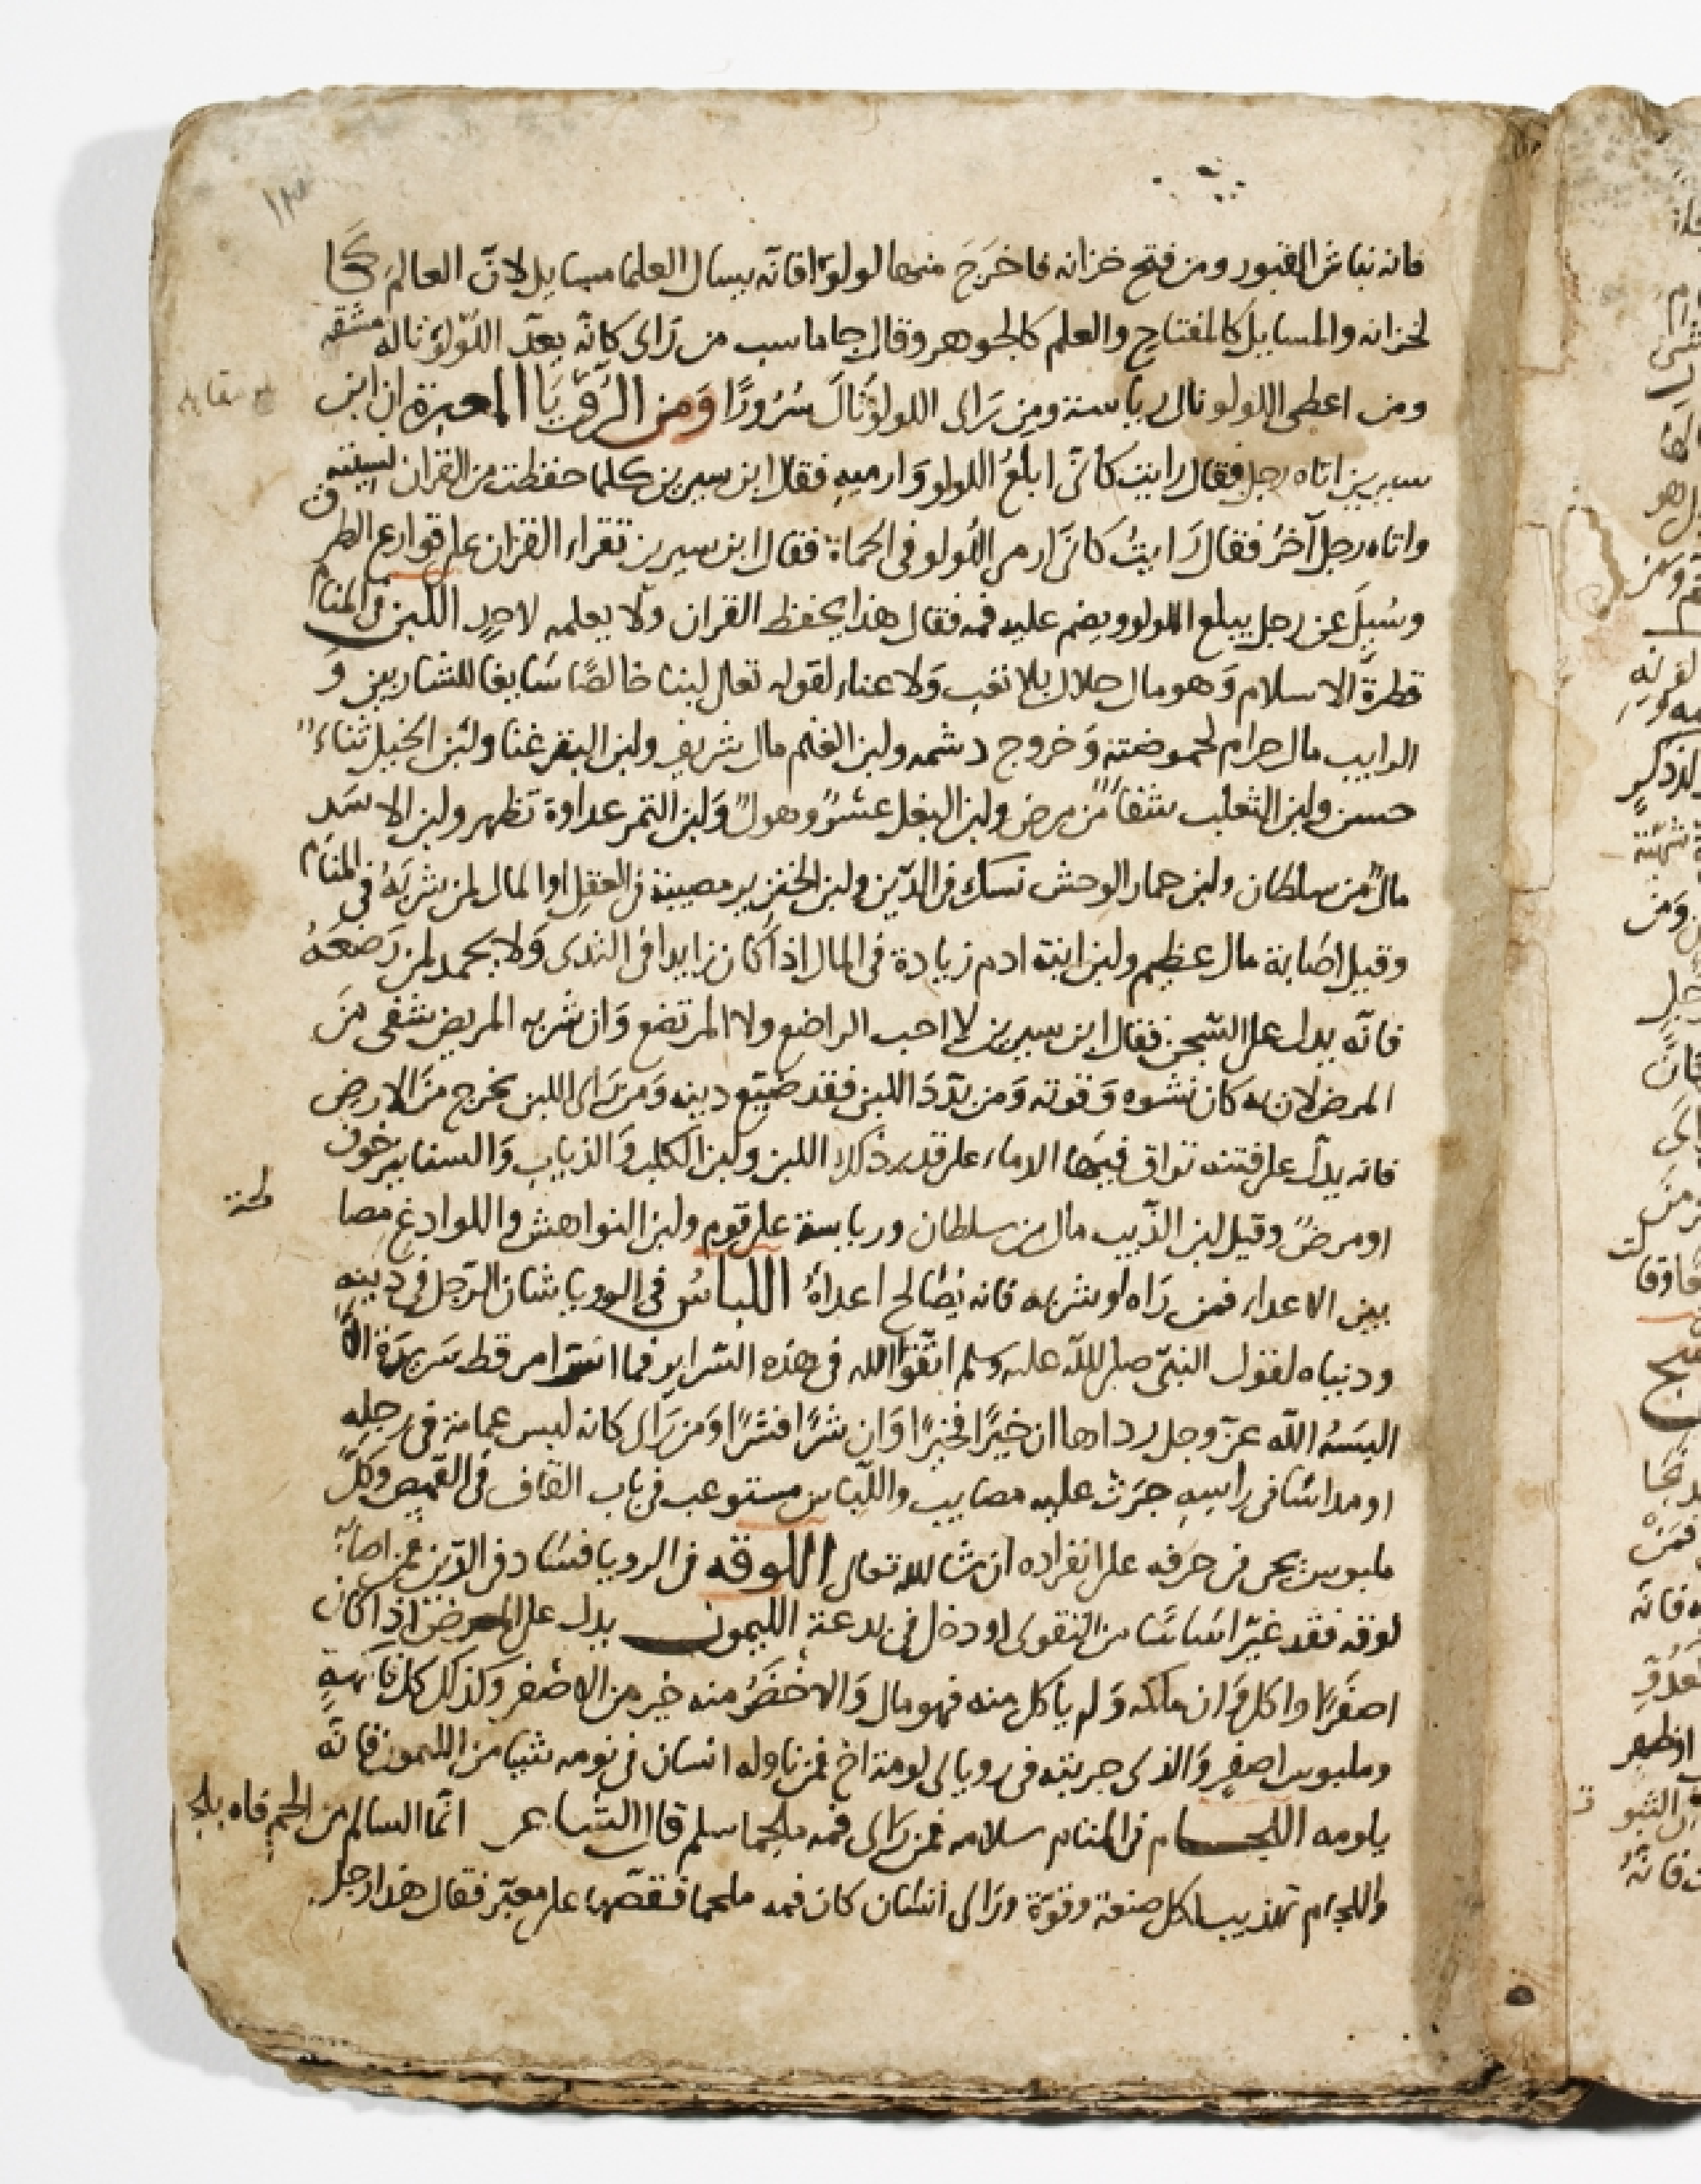 ١٣
فانه نباش القبور ومن فتح خزانه فاخرج منها لولوا فانه يسال العلما مسايل لان العالم كا
لخزانه والمسايل كالمفتاح والعلم كالجوهر وقال جاماسب من راى كانه يعد اللولو ناله مشقه
ومن اعطى اللولو نال رياسة ومن راى اللولو نال سرورا ومن الرؤيا المعبرة ان ابن
سيرين اتاه رجل فقال رايت كانى ابلع اللولو وارميه فقال ابن سيرين كلما حفظت من القران نسيته
واتاه رجل آخر فقال رايت كانى ارمى اللولو فى الحماة فقال ابن سيرين تقراء القران على قوارع الطرق
وسيل عن رجل يبلع اللولو ويضم عليه فمه فقال هذا يحفظ القران ولا يعلمه لاحد اللبن فى المنام
فطرة الاسلام وهو مال حلال بلا تعب ولا عناء لقوله تعالى لبنا خالصا سايغا للشاربين و
الرايب مال حرام لحموضته وخروج دسمه ولبن الغنم مال شريف ولبن البقر غنا ولبن الخيل ثناء
حسن ولبن الثعلب شفاء من مرض ولبن البغل عسر وهول ولبن النمر عداوة تظهر ولبن الاسد
مال من سلطان ولبن حمار الوحش نسك فى الدين ولبن الخنزير مصيبة فى العقل او المال لمن شربه فى المنام
وقيل اصابة مال عظيم ولبن ابنة ادم زيادة فى المال اذا كان زايدا فى الثدى ولا يحمد لمن رضعه
فانه يدل على السجن فقال ابن سيرين لا احب الراضع ولا المرتضع وان شربه المريض شفى من
المرض لان به كان نشوه وقوته ومن بدد اللبن فقد ضيع دينه ومن راى اللبن يخرج من الارض
فانه يدل على فتنه تراق فيها الدماء على قدر ذلك اللبن ولبن الكلب والذياب والسنانير خوف
او مرض وقيل لبن الذيب مال من سلطان ورياسة على قوم ولبن النواهش واللوادغ مصا
لحة
بين الاعداء فمن راه او شربه فانه يصالح اعداه اللباس فى الرويا شان الرجل فى دينه
ودنياه لقول النبى صلى الله عليه وسلم اتقوا الله فى هذه السراير فما اسر امر قط سريرة الا
البسه الله عز وجل رداها ان خيرا فخيرا وان شرا فشرا ومن راى كانه لبس عمامة فى رجله
او مداسا فى راسه جرت عليه مصايب واللباس مستوعب فى باب القاف فى القميص وكل
ملبوس يجى فى حرفه على انفراده ان شا الله تعالى اللوقه فى الرويا فساد فى الدين فمن اصابه
لوقه فقد غير اساسا من التقوى او دخل فى بدعة الليمون يدل على المرض اذا كان
اصفرا واكل وان ملكه ولم ياكل منه فهو مال والاخضر منه خير من الاصفر وكذلك كل فاكهة
وملبوس اصفر والذى جربته فى روياى لومة اخ فمن ناوله انسان فى نومه شيا من الليمون فانه
يلومه اللجام فى المنام سلامه فمن راى فمه ملجما سلم قال الشاعر انما السالم من الجم فاه بلجا
واللجام تهذيب لكل صنعة وقوة وراى انسان كان فمه ملجما فقصها على معبر فقال هذا رجل